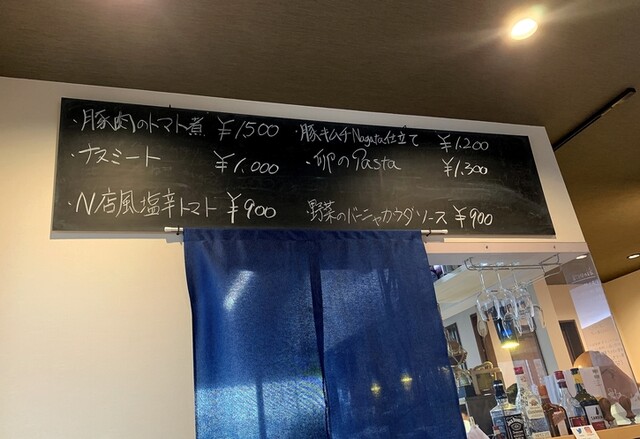 ・豚肉のトマト煮 ¥1500
・ナスミート ¥1,000
・N店風塩辛トマト ¥900
・豚キムチNagata仕立て ¥1,200
・卵のPasta ¥1,300
・野菜のバーニャカウダソース ¥900